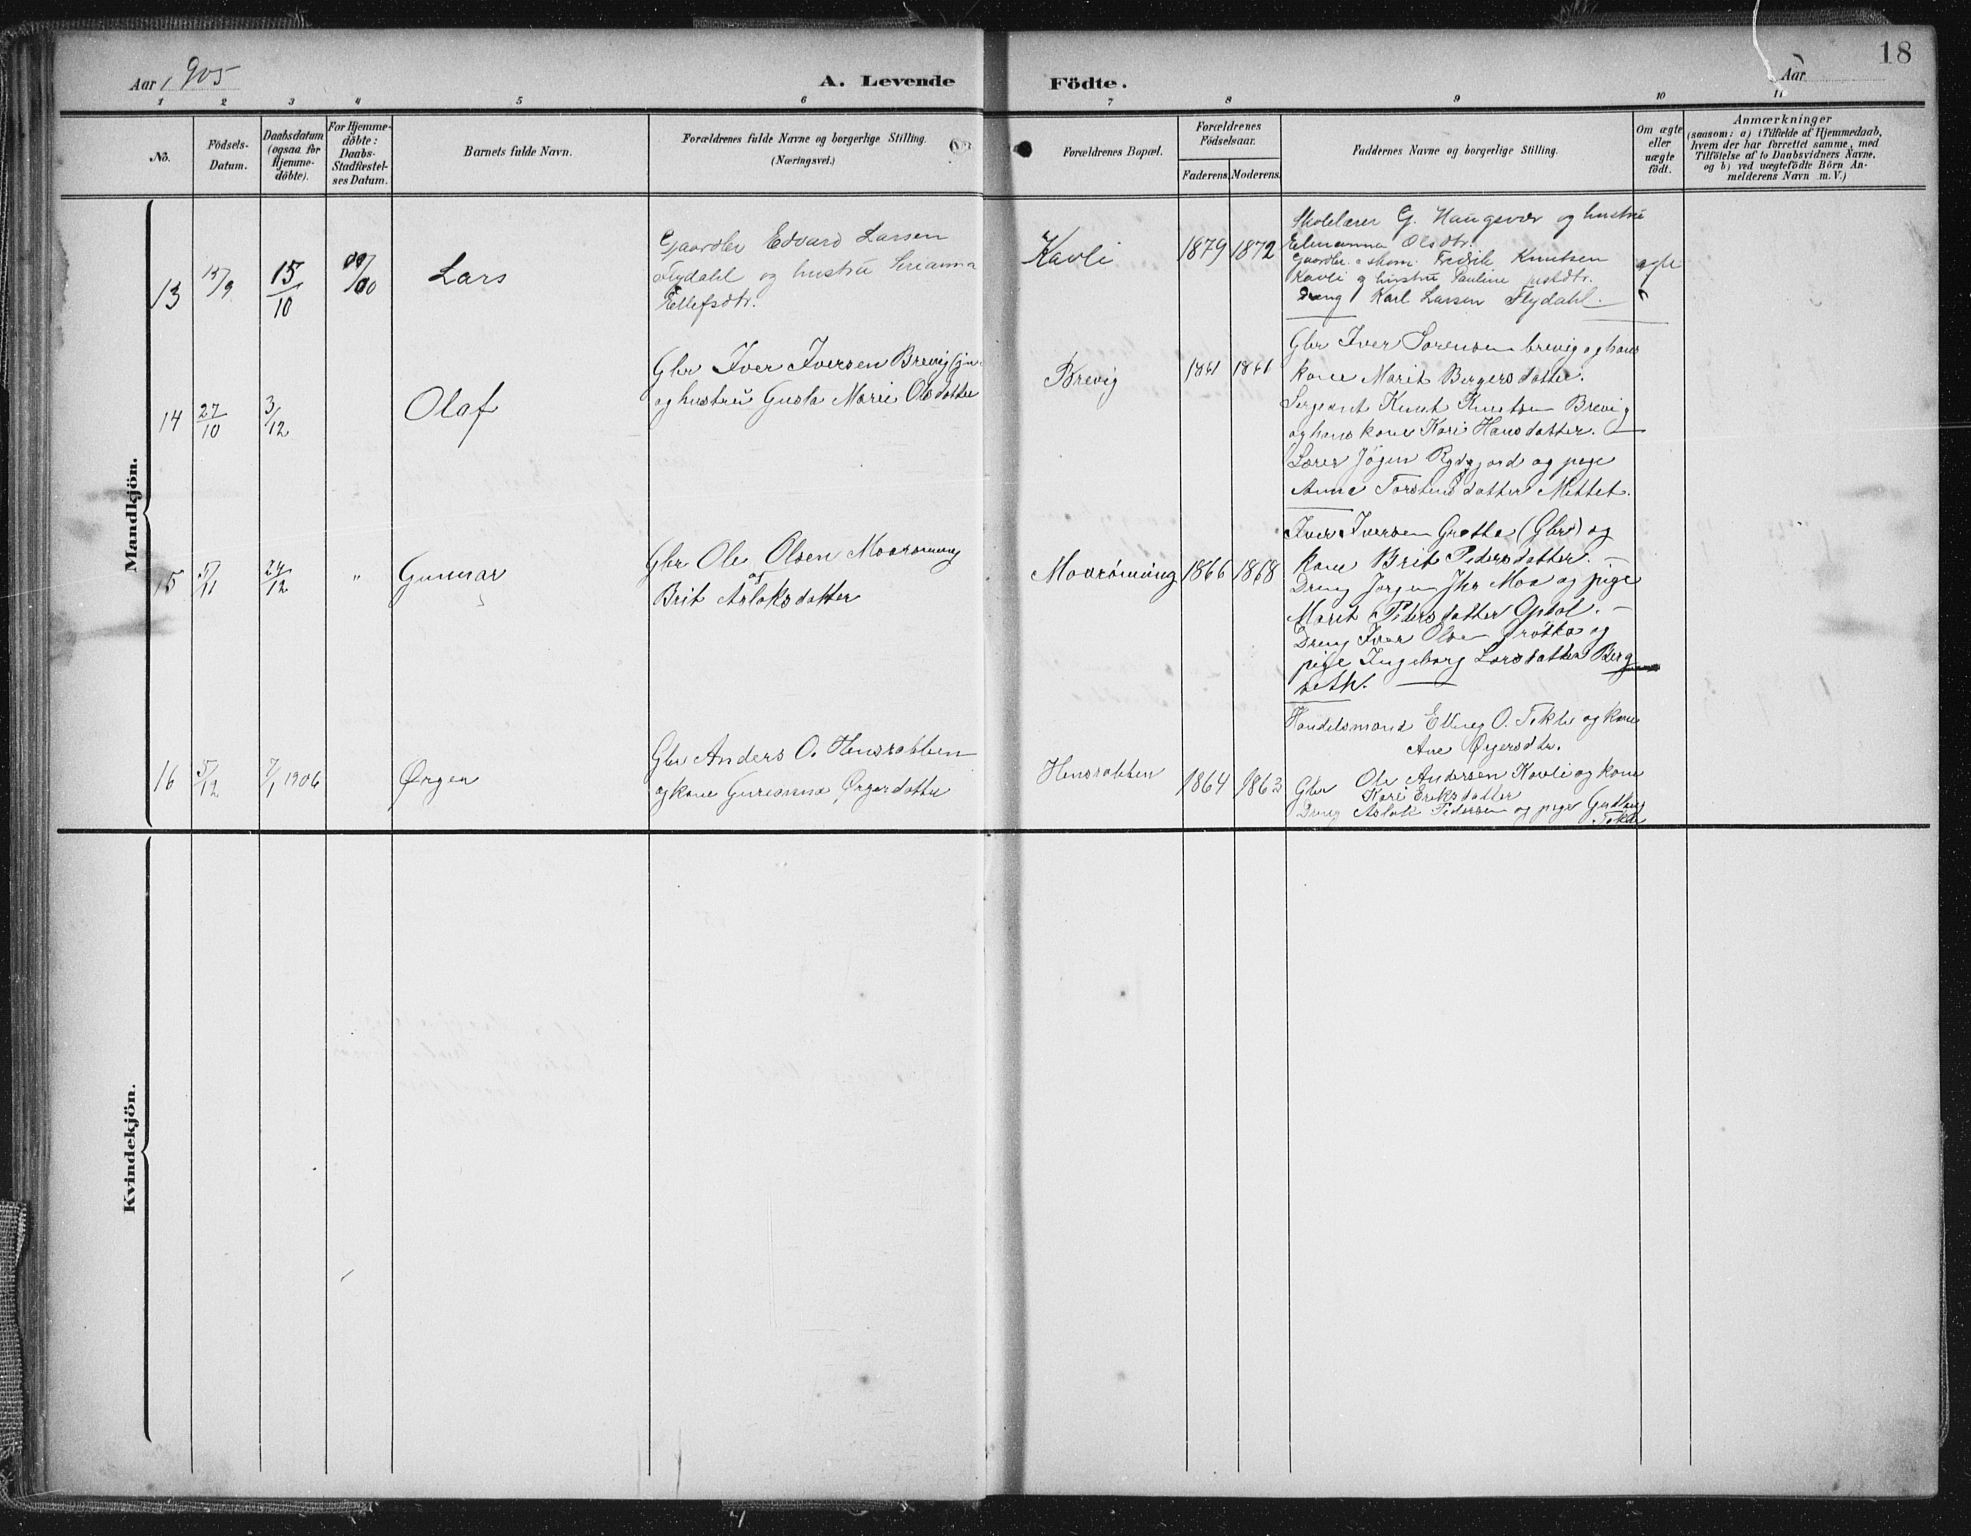 Aar 1905
A. Levende Födte.
Aar
18
1 2 3 4 5 6 7 8 9 10 11
No.
Födsels-
Datum.
Daabsdatum
(ogsaa for
Hjemme-
døbte).
For Hjemme-
döbte:
Daabs-
Stadfæstel-
ses Datum.
Barnets fulde Navn.
Forældrenes fulde Navne og borgerlige Stilling.
(Næringsvei.)
Forældrenes Bopæl.
Forældrenes
Födselsaar.
Faderens. Moderens.
Faddernes Navne og borgerlige Stilling.
Om ægte
eller
uægte
födt.
Anmærkninger
(saasom: a) i Tilfælde af Hjemmedaab,
hvem der har forrettet samme, med
Tilföielse af to Daabsvidners Navne,
og b) ved uægtefödte Börn An-
melderens Navn m. V.)
Mandkjön.
13 15/9 15/10
Lars
Gaardbr Edvard Larsen
Flydahl og hustru Serianna
Ellefsdtr.
Kavli
1879 1872
Skolelærer G. Haugsvær og hustru
Elenanna Olsdtr.
Gaardbr. Fredrik Knutsen
Kavli og hustru Pauline
Dreng Karl Larsen Flydahl.
ægte
14 27/10 3/12
Olaf
Gbr Iver Iversen Brevig
og hustru Gusta Marie Olsdatter
Brevig
1861 1861
Gbr Iver Sørensen brevig og hans
kone Marit Bergersdatter.
Sergeant Knut Knutsen Brevig
og hans kone Kari Hansdatter. —
Lærer Jögen Rydgjord og pige
Anne Torstensdatter Mittet.
15 5/11 24/12 "
Gunnar
Gbr Ole Olsen Moarøming
Brit Aslaksdatter
Moarøming
1866 1868
Iver Iversen Grøtta (Gbr) og
kone Brit Pedersdatter. —
Dreng Jørgen Moa og pige
Marit Pedersdatter Opdøl. —
Dreng Iver Olsen Grøtta og
pige Ingeborg Larsdatter Berg
seth. —
16 5/12 7/1 1906
Ørger
Gbr Anders O. Hensrabben
og kone Gurianna Ørgersdatter
Hensrabben
1864 1863
Handelsmand O. Tokle og kone
Ane Ørgersdtr.
Gbr Ole Andersen Kavli og kone
Kari Eriksdatter
Dreng Aslak Pedersen og pige
Tokle
Kvindekjön.